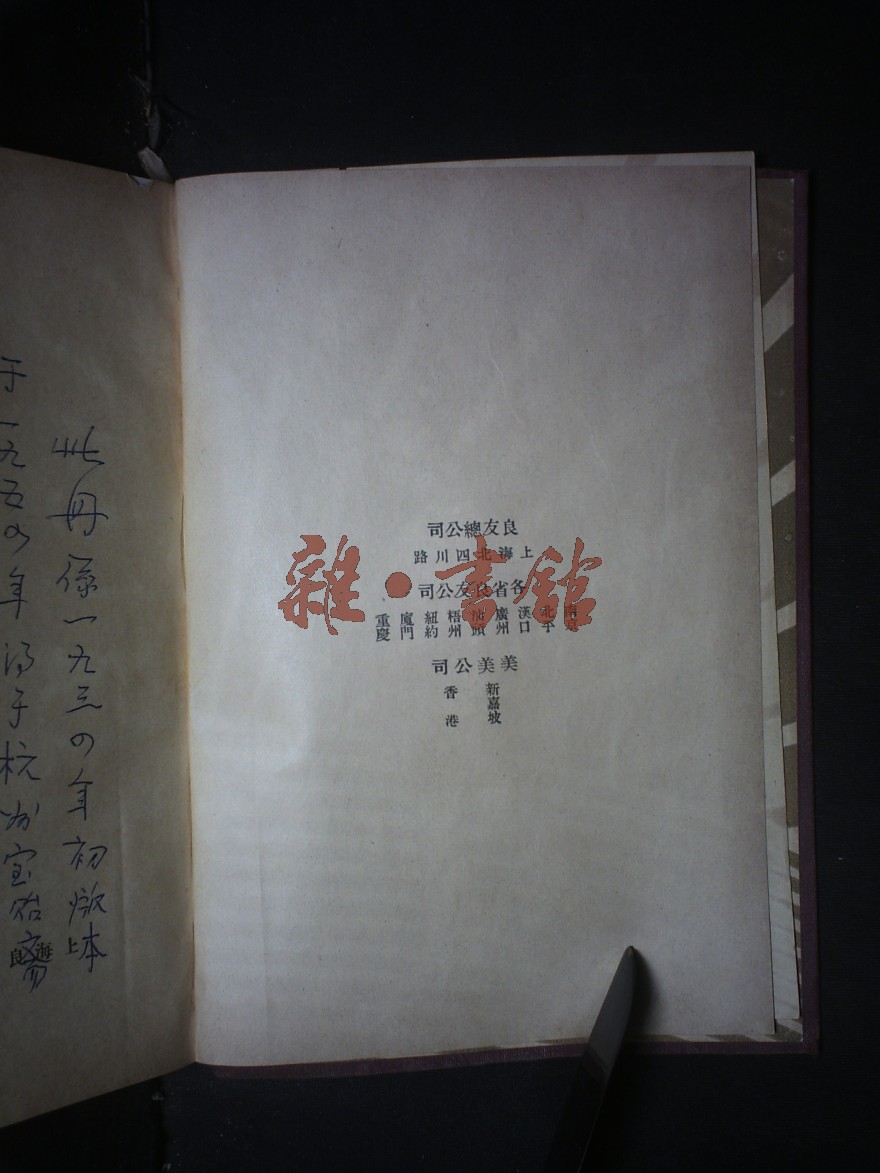 此冊係一九三四年初本
于一九五四年得于杭州宝斋
上海良
良友總公司
上海北四川路
各省良友公司
南京 北平 漢口 廣州 汕頭 梧州 紐約 廈門 重慶
美美公司
新嘉坡 香港
雜·書館